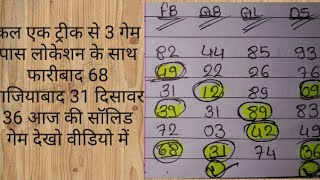 कल एक ट्रीक से 3 गेम
पास लोकेशन के साथ
फारीबाद 68
गाजियाबाद 31 दिसावर
36 आज की सॉलिड
गेम देखो वीडियो में
FB GB GL DS
82 44 85 93
49 22 26 76
31 12 89 09
39 31 89 03
72 03 42 49
68 31 74 36